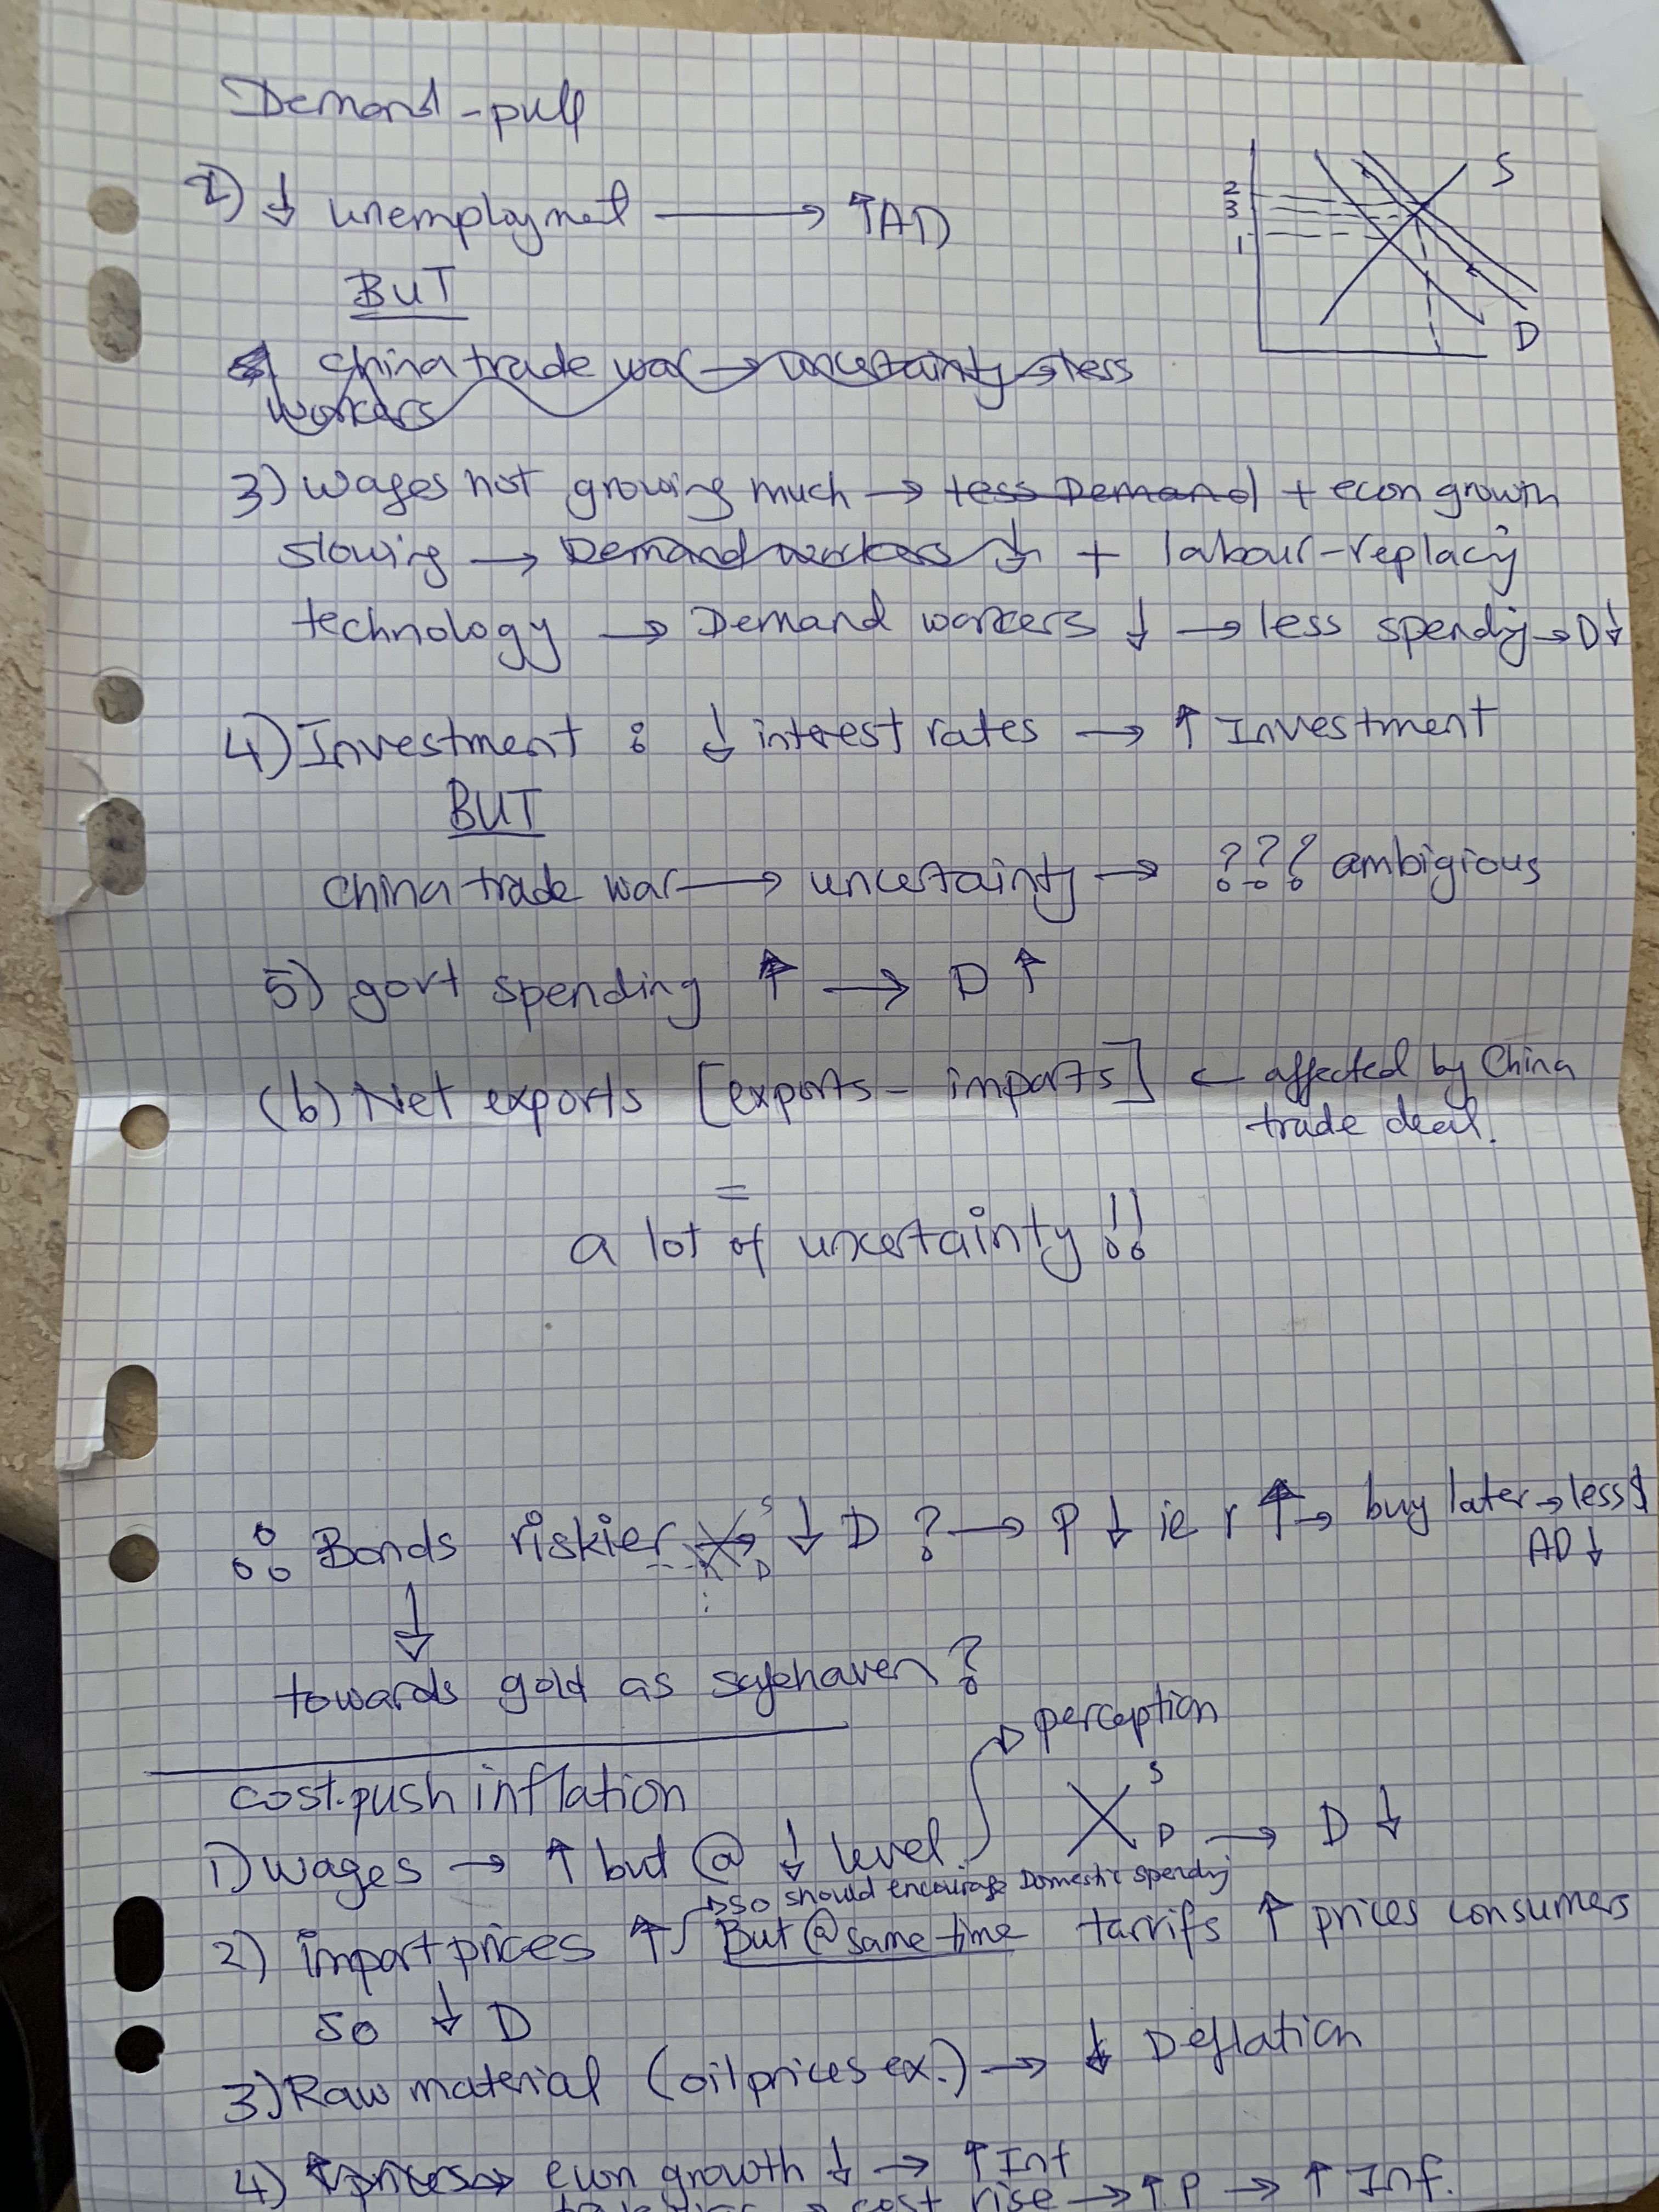 Demand-pull
2) ↓ unemploymet → ↑AD
S
2
3
1
D
BUT
China trade war → uncertainty → less
workers
3) wages not growing much → less Demand + econ growth
slowing → Demand workers ↓ + labour-replacing
technology → Demand workers ↓ → less spending → D↓
4) Investment : ↓ interest rates → ↑ Investment
BUT
China trade war → uncertainty → ??? ambigious
5) govt spending ↑ → D ↑
(b) Net exports [exports - imports] ← affected by China
trade deal.
=
a lot of uncertainty !!
∴ Bonds riskier S D ↓ D ? → P ↓ ie r ↑ → buy later → less $
AD ↓
↓
towards gold as safehaven ?
perception
cost-push inflation
1) wages → ↑ but @ ↓ level. S D → D ↓
→ so should encourage Domestic spending
2) import prices ↑ But @ same time tarrifs ↑ prices consumers
so ↓ D
3) Raw material (oil prices ex.) → ↓ Deflation
4) ↑ prices → econ growth ↓ → ↑ Inf
cost rise → ↑ P → ↑ Inf.